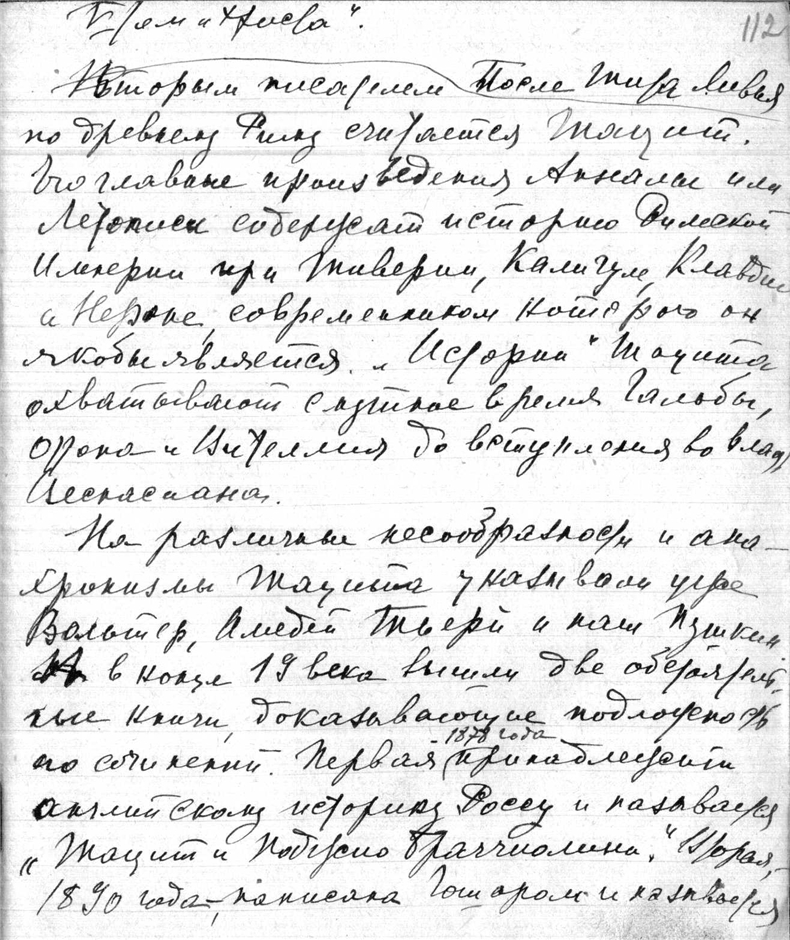 112
Вторым писателем После Тита Ливья
по древнему Риму считается Тацит.
Его главные произведения Анналы или
Летописи содержат историю Римской
Империи при Тиверии, Калигуле, Клавдии
и Нероне, современником которого он
якобы является. „Истории" Тацита
охватывают смутное время Гальбы,
Отона и Вителлия до вступления во власть
Веспасиана.
На различные несообразности и ана-
хронизмы Тацита указывали уже
Вольтер, Амедей Тьери и наш Пушкин
в конце 19 века вышли две обстоятель-
ные книги, доказывающие подложность
его сочинений. Первая 1878 года принадлежит
английскому историку Россу и называется
„Тацит и Поджио Браччиолини." Вторая,
1890 года, написана Гошаром и называется